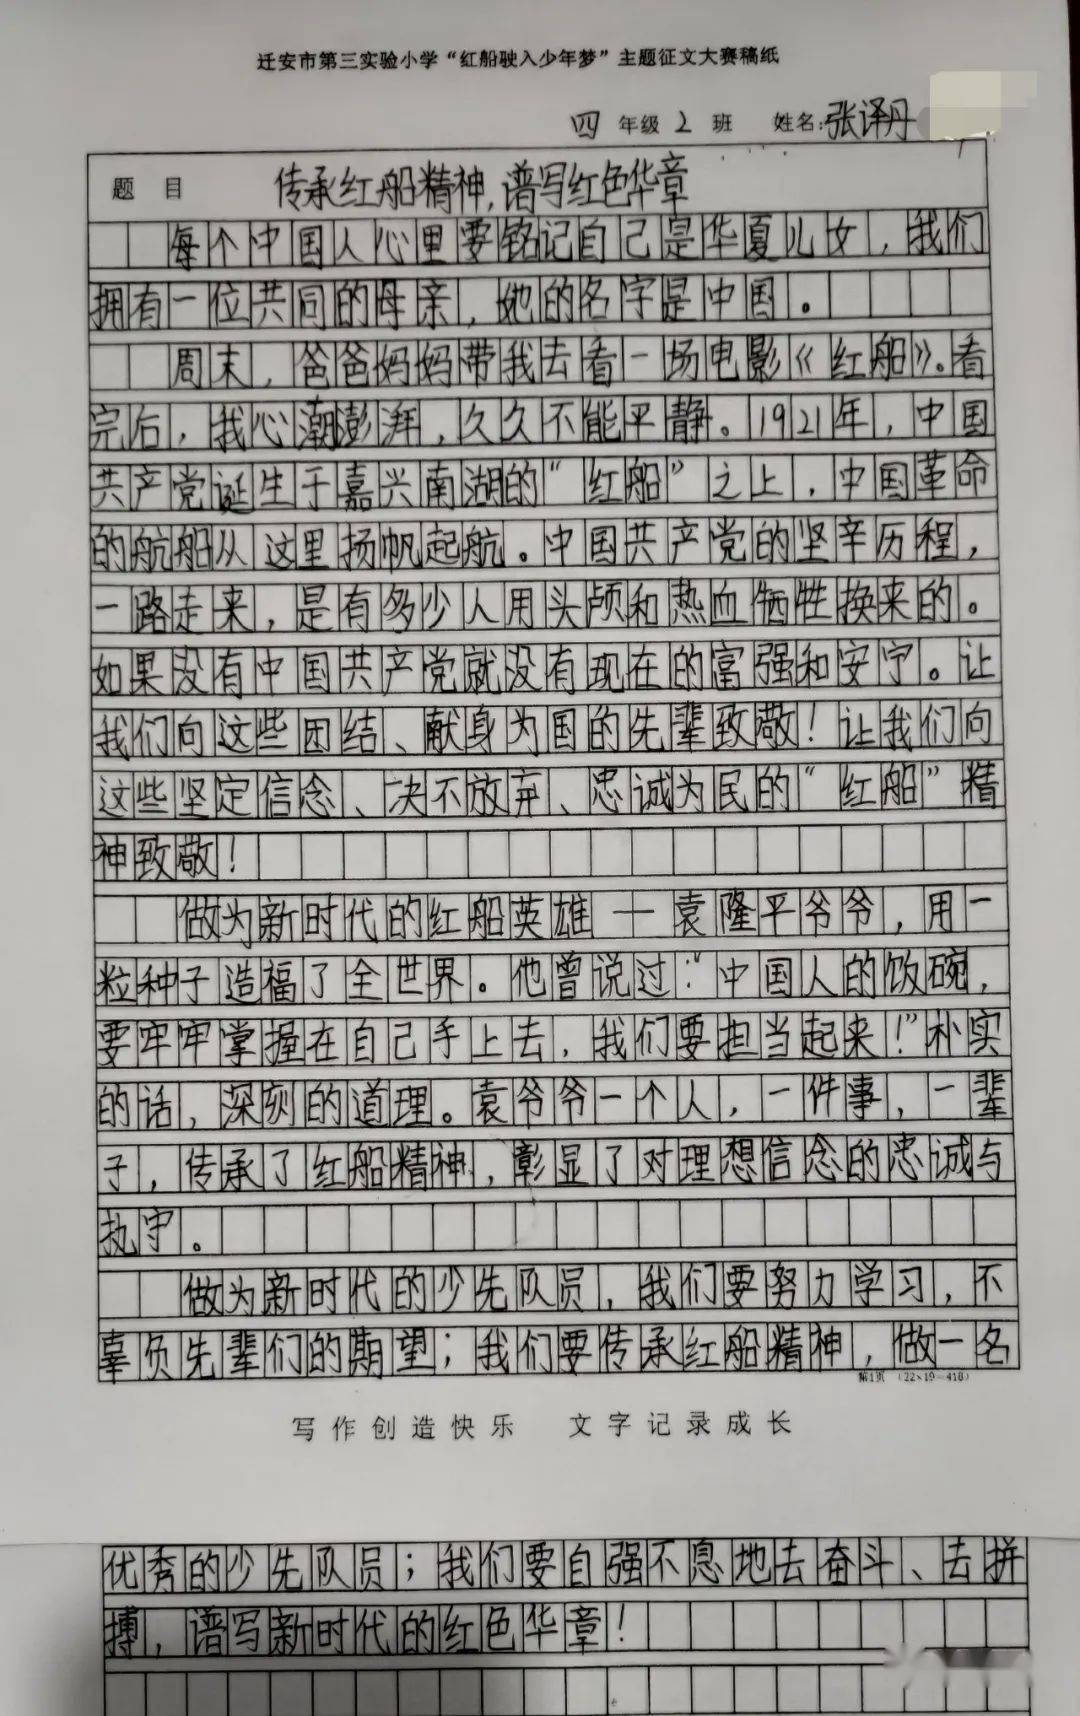 迁安市第三实验小学“红船驶入少年梦”主题征文大赛稿纸
四 年级 2 班 姓名:张译丹
题目 传承红船精神,谱写红色华章
每个中国人心里要铭记自己是华夏儿女,我们
拥有一位共同的母亲,她的名字是中国。
周末,爸爸妈妈带我去看一场电影《红船》。看
完后,我心潮澎湃,久久不能平静。1921年,中国
共产党诞生于嘉兴南湖的“红船”之上,中国革命
的航船从这里扬帆起航。中国共产党的坚辛历程,
一路走来,是有多少人用头颅和热血牺牲换来的。
如果没有中国共产党就没有现在的富强和安宁。让
我们向这些团结、献身为国的先辈致敬!让我们向
这些坚定信念、决不放弃、忠诚为民的“红船”精
神致敬!
做为新时代的红船英雄——袁隆平爷爷,用一
粒种子造福了全世界。他曾说过:“中国人的饭碗,
要牢牢掌握在自己手上去,我们要担当起来!”朴实
的话,深刻的道理。袁爷爷一个人,一件事,一辈
子,传承了红船精神,彰显了对理想信念的忠诚与
执守。
做为新时代的少先队员,我们要努力学习,不
辜负先辈们的期望;我们要传承红船精神,做一名
第1页 (22×19=418)
写作创造快乐 文字记录成长
优秀的少先队员;我们要自强不息地去奋斗、去拼
搏,谱写新时代的红色华章!